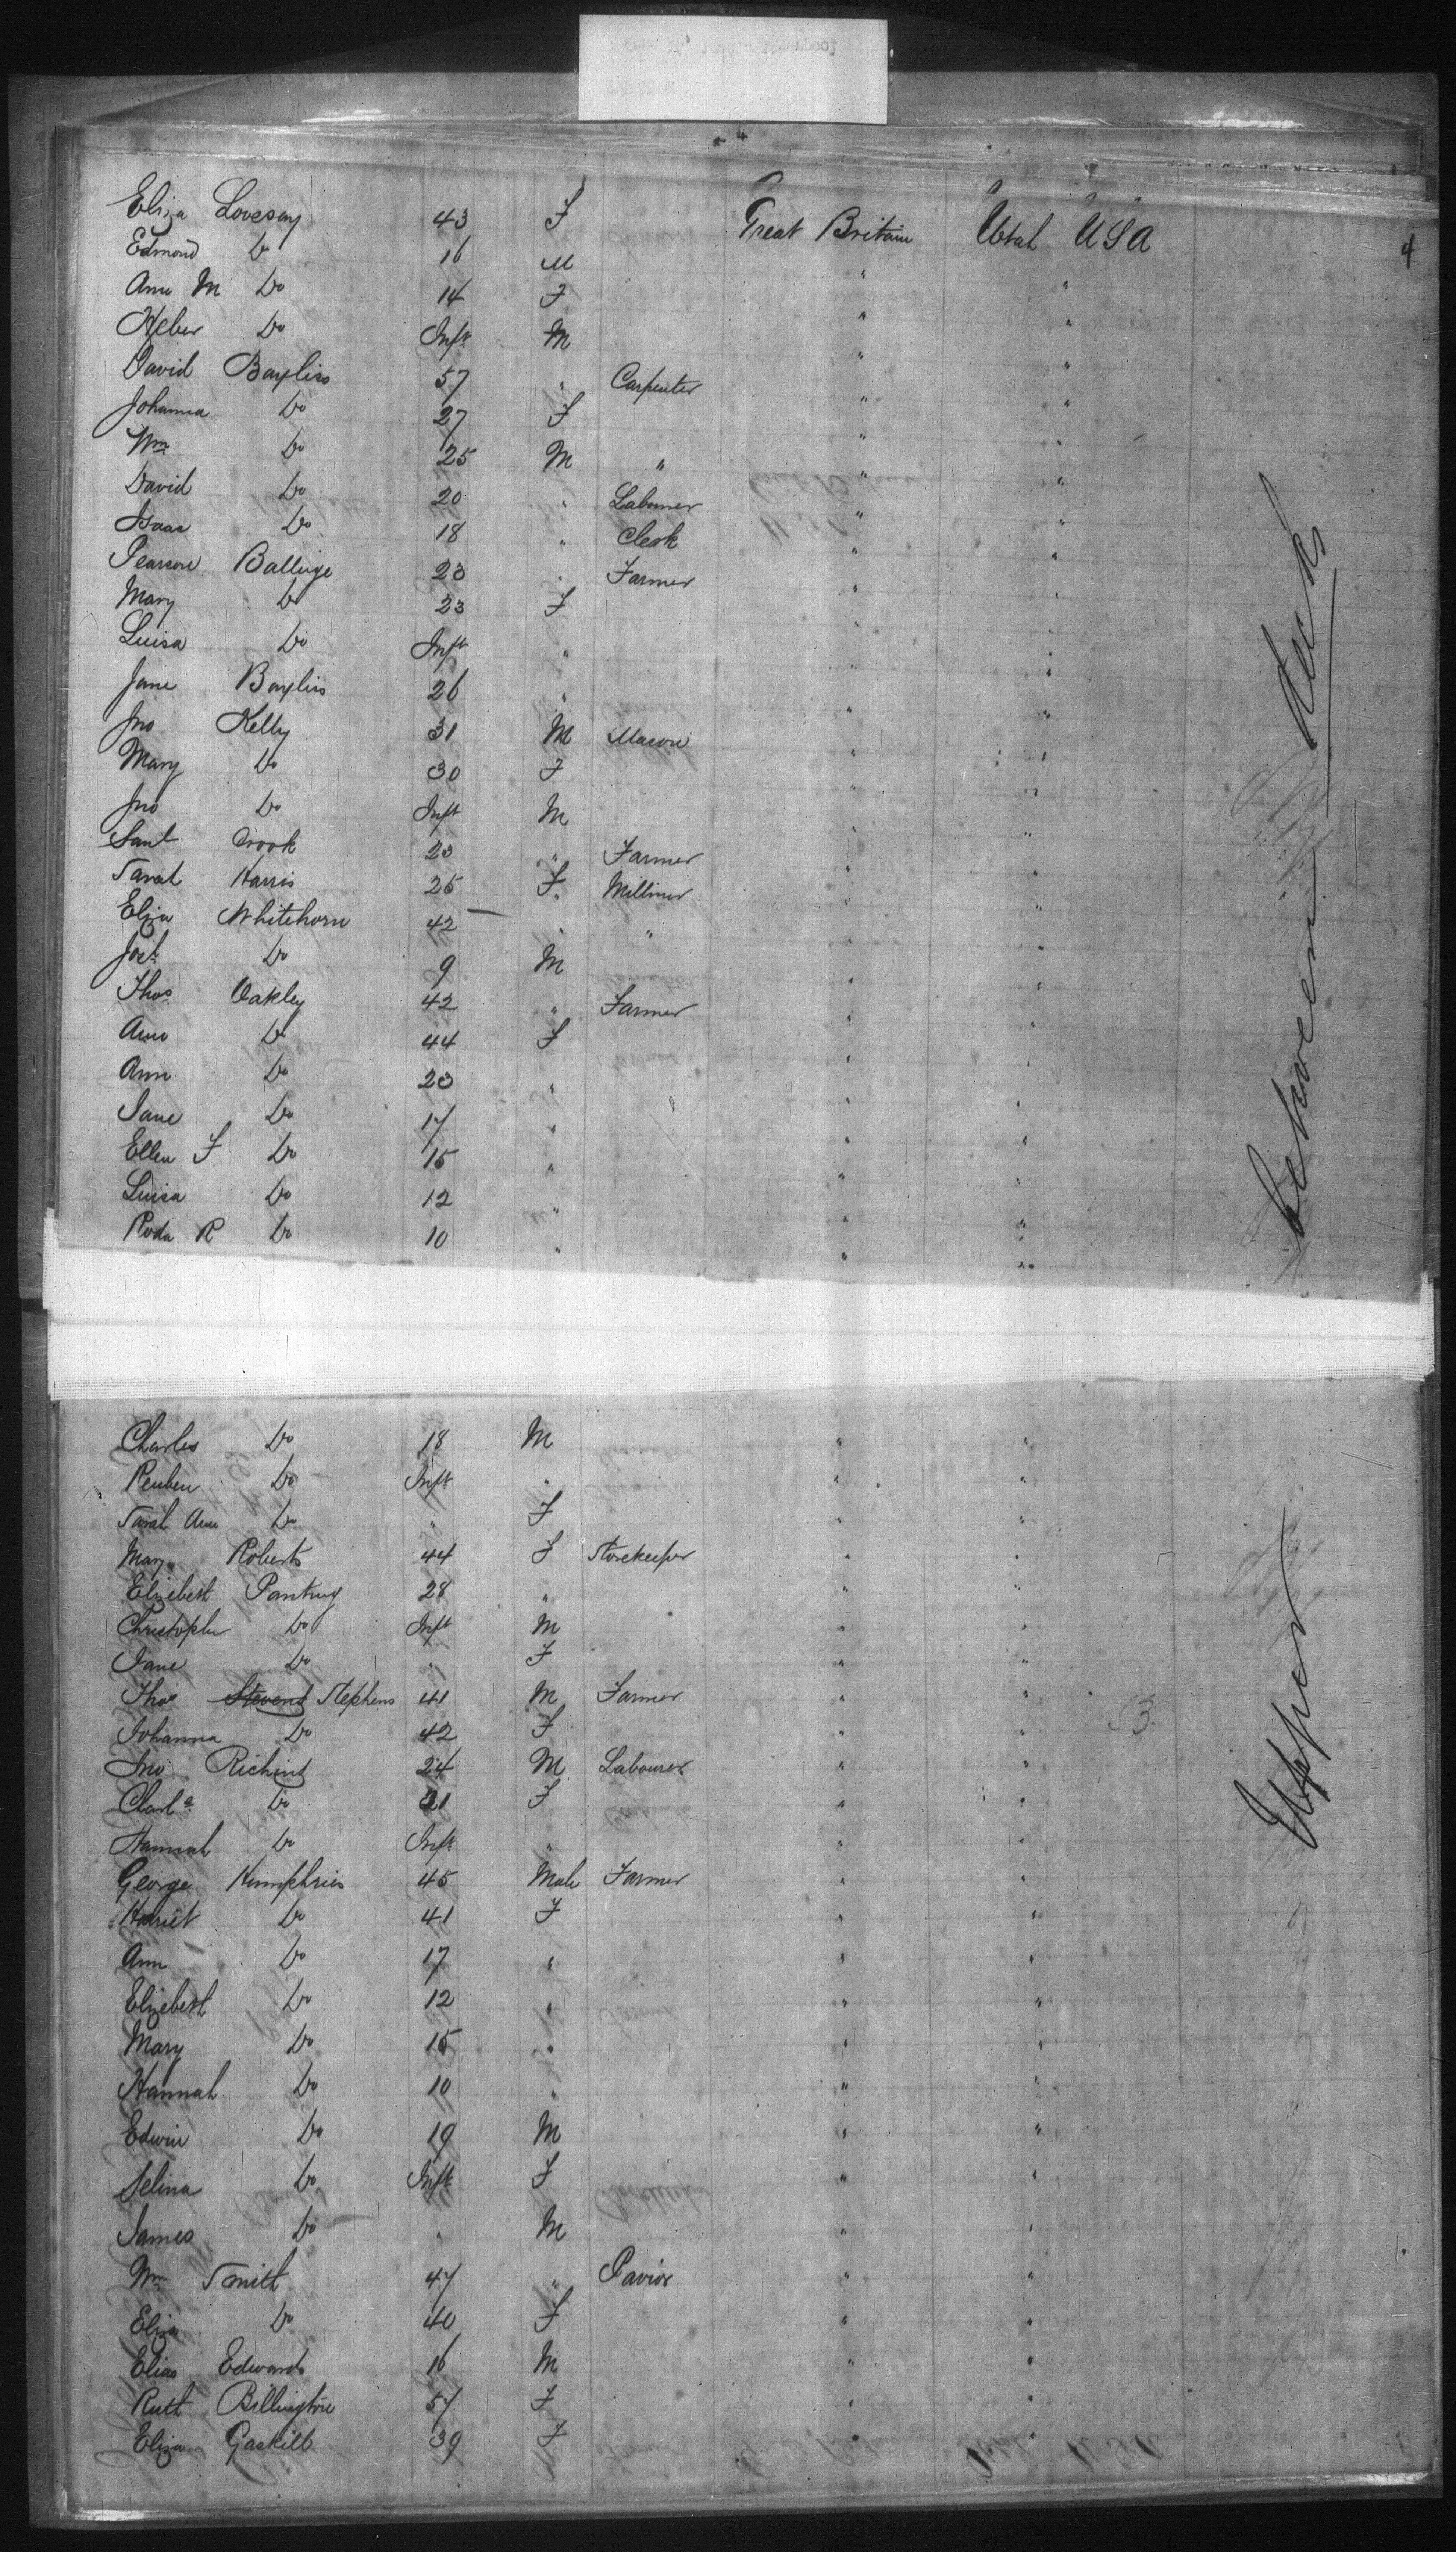 4
Eliza Lovesay 43 F Great Britain Utah USA 4
Edmond Do 16 M " "
Ann M Do 14 F " "
Heber Do Inft M " "
David Bayliss 57 " Carpenter " "
Johanna Do 27 F " "
Wm Do 25 M " " "
David Do 20 " Labourer " "
Isaac Do 18 " Clerk " "
Pearson Ballinge 23 " Farmer " "
Mary Do 23 F " "
Luisa Do Inft " " "
Jane Bayliss 26 " " "
Jno Kelly 31 M Mason " "
Mary Do 30 F " "
Jno Do Inft M " "
Saml Crook 23 " Farmer " "
Sarah Harris 25 F " Milliner " "
Eliza Whitehorn 42 " " " "
Josh Do 9 M " "
Thos Oakley 42 " Farmer " "
Ann Do 44 F " "
Ann Do 23 " " "
Jane Do 17 " " "
Ellen F Do 15 " " "
Luisa Do 12 " " "
Roda R Do 10 " " "
between
Deck
Charles Do 18 M " "
Reuben Do Inft " " "
Sarah Ann Do " F " "
Mary Roberts 44 F Storekeeper " "
Elizebeth 28 " " "
Christopher Do Inft M " "
Jane Do " F " "
Thos Stevens Stephens 41 M Farmer " "
Johanna Do 42 F " "
Jno Richins 24 M Labourer " "
Charle Do 21 F " "
Hannah Do Inft " " "
George Humphries 45 Male Farmer " "
Harriet Do 41 F " "
Ann Do 17 " " "
Elizebeth Do 12 " " "
Mary Do 15 " " "
Hannah Do 10 " " "
Edwin Do 19 M " "
Selina Do Inft F " "
James Do " M " "
Wm Smith 47 " Pavior " "
Eliza Do 40 F " "
Elias Edwards 16 M " "
Ruth Billington 57 F " "
Eliza Gaskill 39 F "
Upper